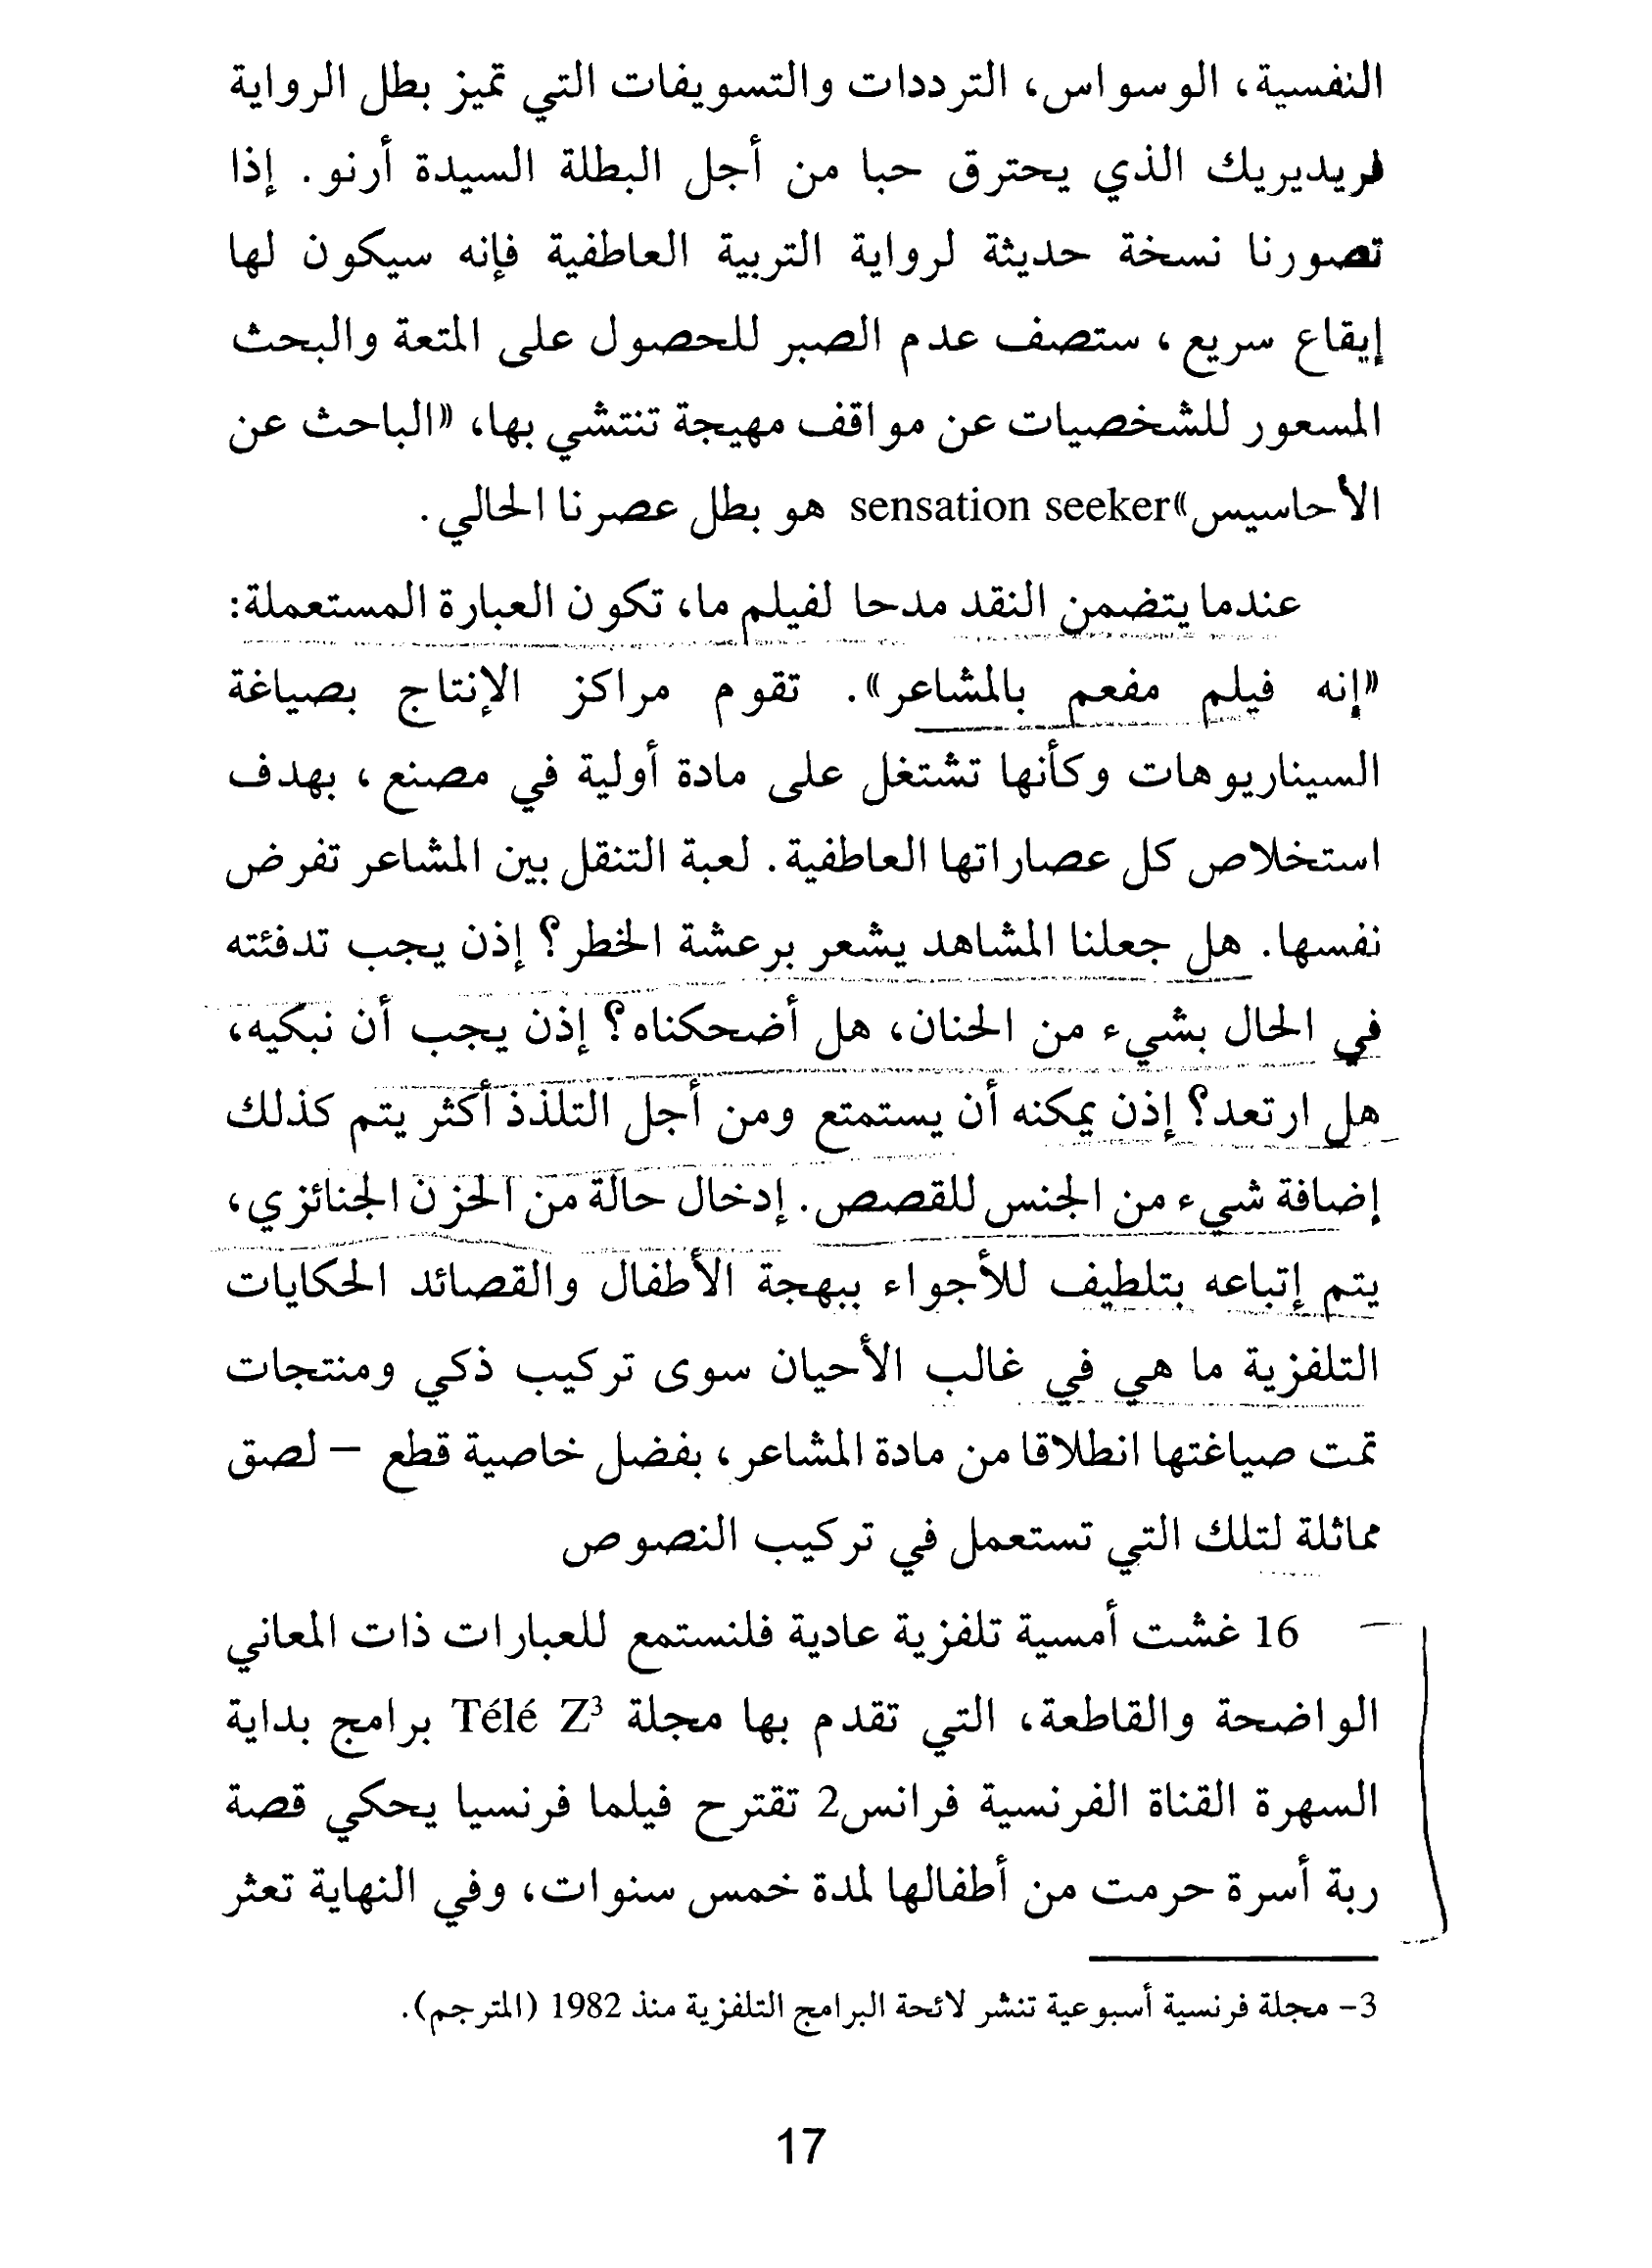 النفسية، الوسواس، الترددات والتسويفات التي تميز بطل الرواية
فريديريك الذي يحترق حبا من أجل البطلة السيدة أرنو. إذا
تصورنا نسخة حديثة لرواية التربية العاطفية فإنه سيكون لها
إيقاع سريع، ستصف عدم الصبر للحصول على المتعة والبحث
المسعور للشخصيات عن مواقف مهيجة تنتشي بها، «الباحث عن
الأحاسيس»sensation seeker هو بطل عصرنا الحالي.
عندما يتضمن النقد مدحا لفيلم ما، تكون العبارة المستعملة:
«إنه فيلم مفعم بالمشاعر». تقوم مراكز الإنتاج بصياغة
السيناريوهات وكأنها تشتغل على مادة أولية في مصنع، بهدف
استخلاص كل عصاراتها العاطفية. لعبة التنقل بين المشاعر تفرض
نفسها. هل جعلنا المشاهد يشعر برعشة الخطر؟ إذن يجب تدفئته
في الحال بشيء من الحنان، هل أضحكناه؟ إذن يجب أن نبكيه،
هل ارتعد؟ إذن يمكنه أن يستمتع ومن أجل التلذذ أكثر يتم كذلك
إضافة شيء من الجنس للقصص. إدخال حالة من الحزن الجنائزي،
يتم إتباعه بتلطيف للأجواء ببهجة الأطفال والقصائد الحكايات
التلفزية ما هي في غالب الأحيان سوى تركيب ذكي ومنتجات
تمت صياغتها انطلاقا من مادة المشاعر، بفضل خاصية قطع – لصق
مماثلة لتلك التي تستعمل في تركيب النصوص
16 غشت أمسية تلفزية عادية فلنستمع للعبارات ذات المعاني
الواضحة والقاطعة، التي تقدم بها مجلة Télé Z³ برامج بداية
السهرة القناة الفرنسية فرانس2 تقترح فيلما فرنسيا يحكي قصة
ربة أسرة حرمت من أطفالها لمدة خمس سنوات، وفي النهاية تعثر
3- مجلة فرنسية أسبوعية تنشر لائحة البرامج التلفزية منذ 1982 (المترجم).
17